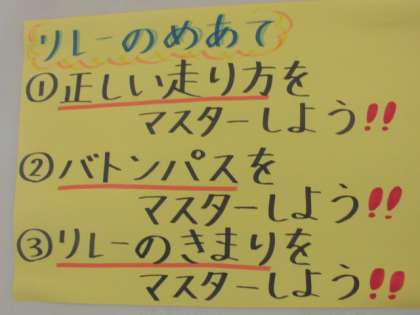 リレーのめあて
①正しい走り方を
マスターしよう!!
②バトンパスを
マスターしよう!!
③リレーのきまりを
マスターしよう!!